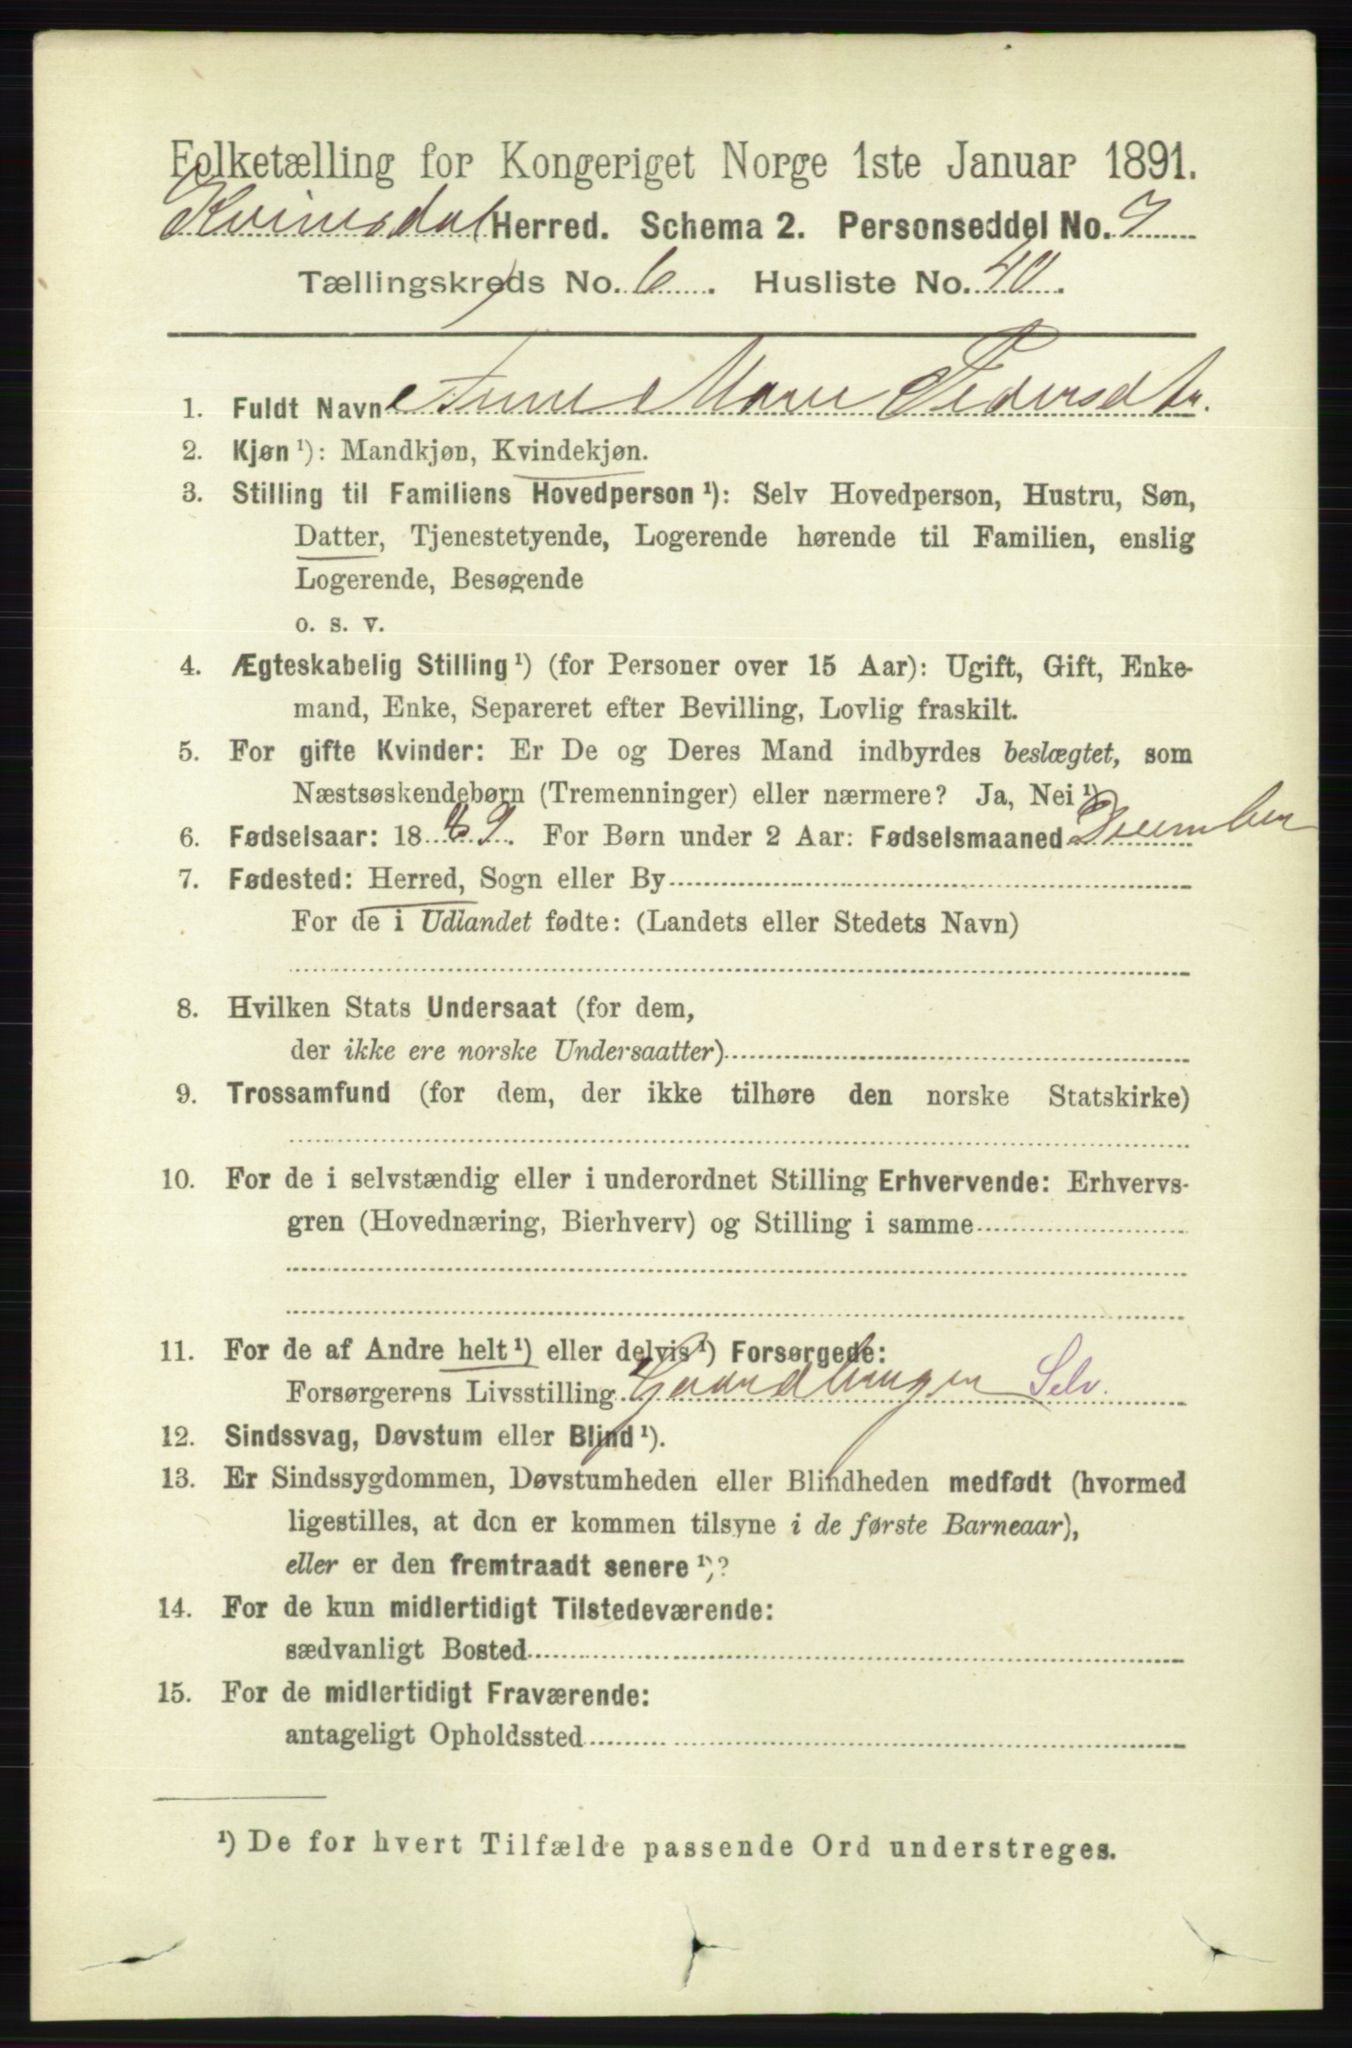 Folketælling for Kongeriget Norge 1ste Januar 1891.
Kvinesdal Herred. Schema 2. Personseddel No. 7
Tællingskreds No. 6. Husliste No. 40.
1. Fuldt Navn Anne Marie Pedersdtr.
2. Kjøn ¹): Mandkjøn, Kvindekjøn.
3. Stilling til Familiens Hovedperson ¹): Selv Hovedperson, Hustru, Søn,
Datter, Tjenestetyende, Logerende hørende til Familien, enslig
Logerende, Besøgende
o. s. v.
4. Ægteskabelig Stilling ¹) (for Personer over 15 Aar): Ugift, Gift, Enke-
mand, Enke, Separeret efter Bevilling, Lovlig fraskilt.
5. For gifte Kvinder: Er De og Deres Mand indbyrdes beslægtet, som
Næstsøskendebørn (Tremenninger) eller nærmere? Ja, Nei ¹)
6. Fødselsaar: 18 89. For Børn under 2 Aar: Fødselsmaaned December
7. Fødested: Herred, Sogn eller By
For de i Udlandet fødte: (Landets eller Stedets Navn)
8. Hvilken Stats Undersaat (for dem,
der ikke ere norske Undersaatter)
9. Trossamfund (for dem, der ikke tilhøre den norske Statskirke)
10. For de i selvstændig eller i underordnet Stilling Erhvervende: Erhvervs-
gren (Hovednæring, Bierhverv) og Stilling i samme
11. For de af Andre helt ¹) eller delvis ¹) Forsørgede:
Forsørgerens Livsstilling Gaardbruger Selv.
12. Sindssvag, Døvstum eller Blind ¹).
13. Er Sindssygdommen, Døvstumheden eller Blindheden medfødt (hvormed
ligestilles, at den er kommen tilsyne i de første Barneaar),
eller er den fremtraadt senere ¹)?
14. For de kun midlertidigt Tilstedeværende:
sædvanligt Bosted
15. For de midlertidigt Fraværende:
antageligt Opholdssted
¹) De for hvert Tilfælde passende Ord understreges.